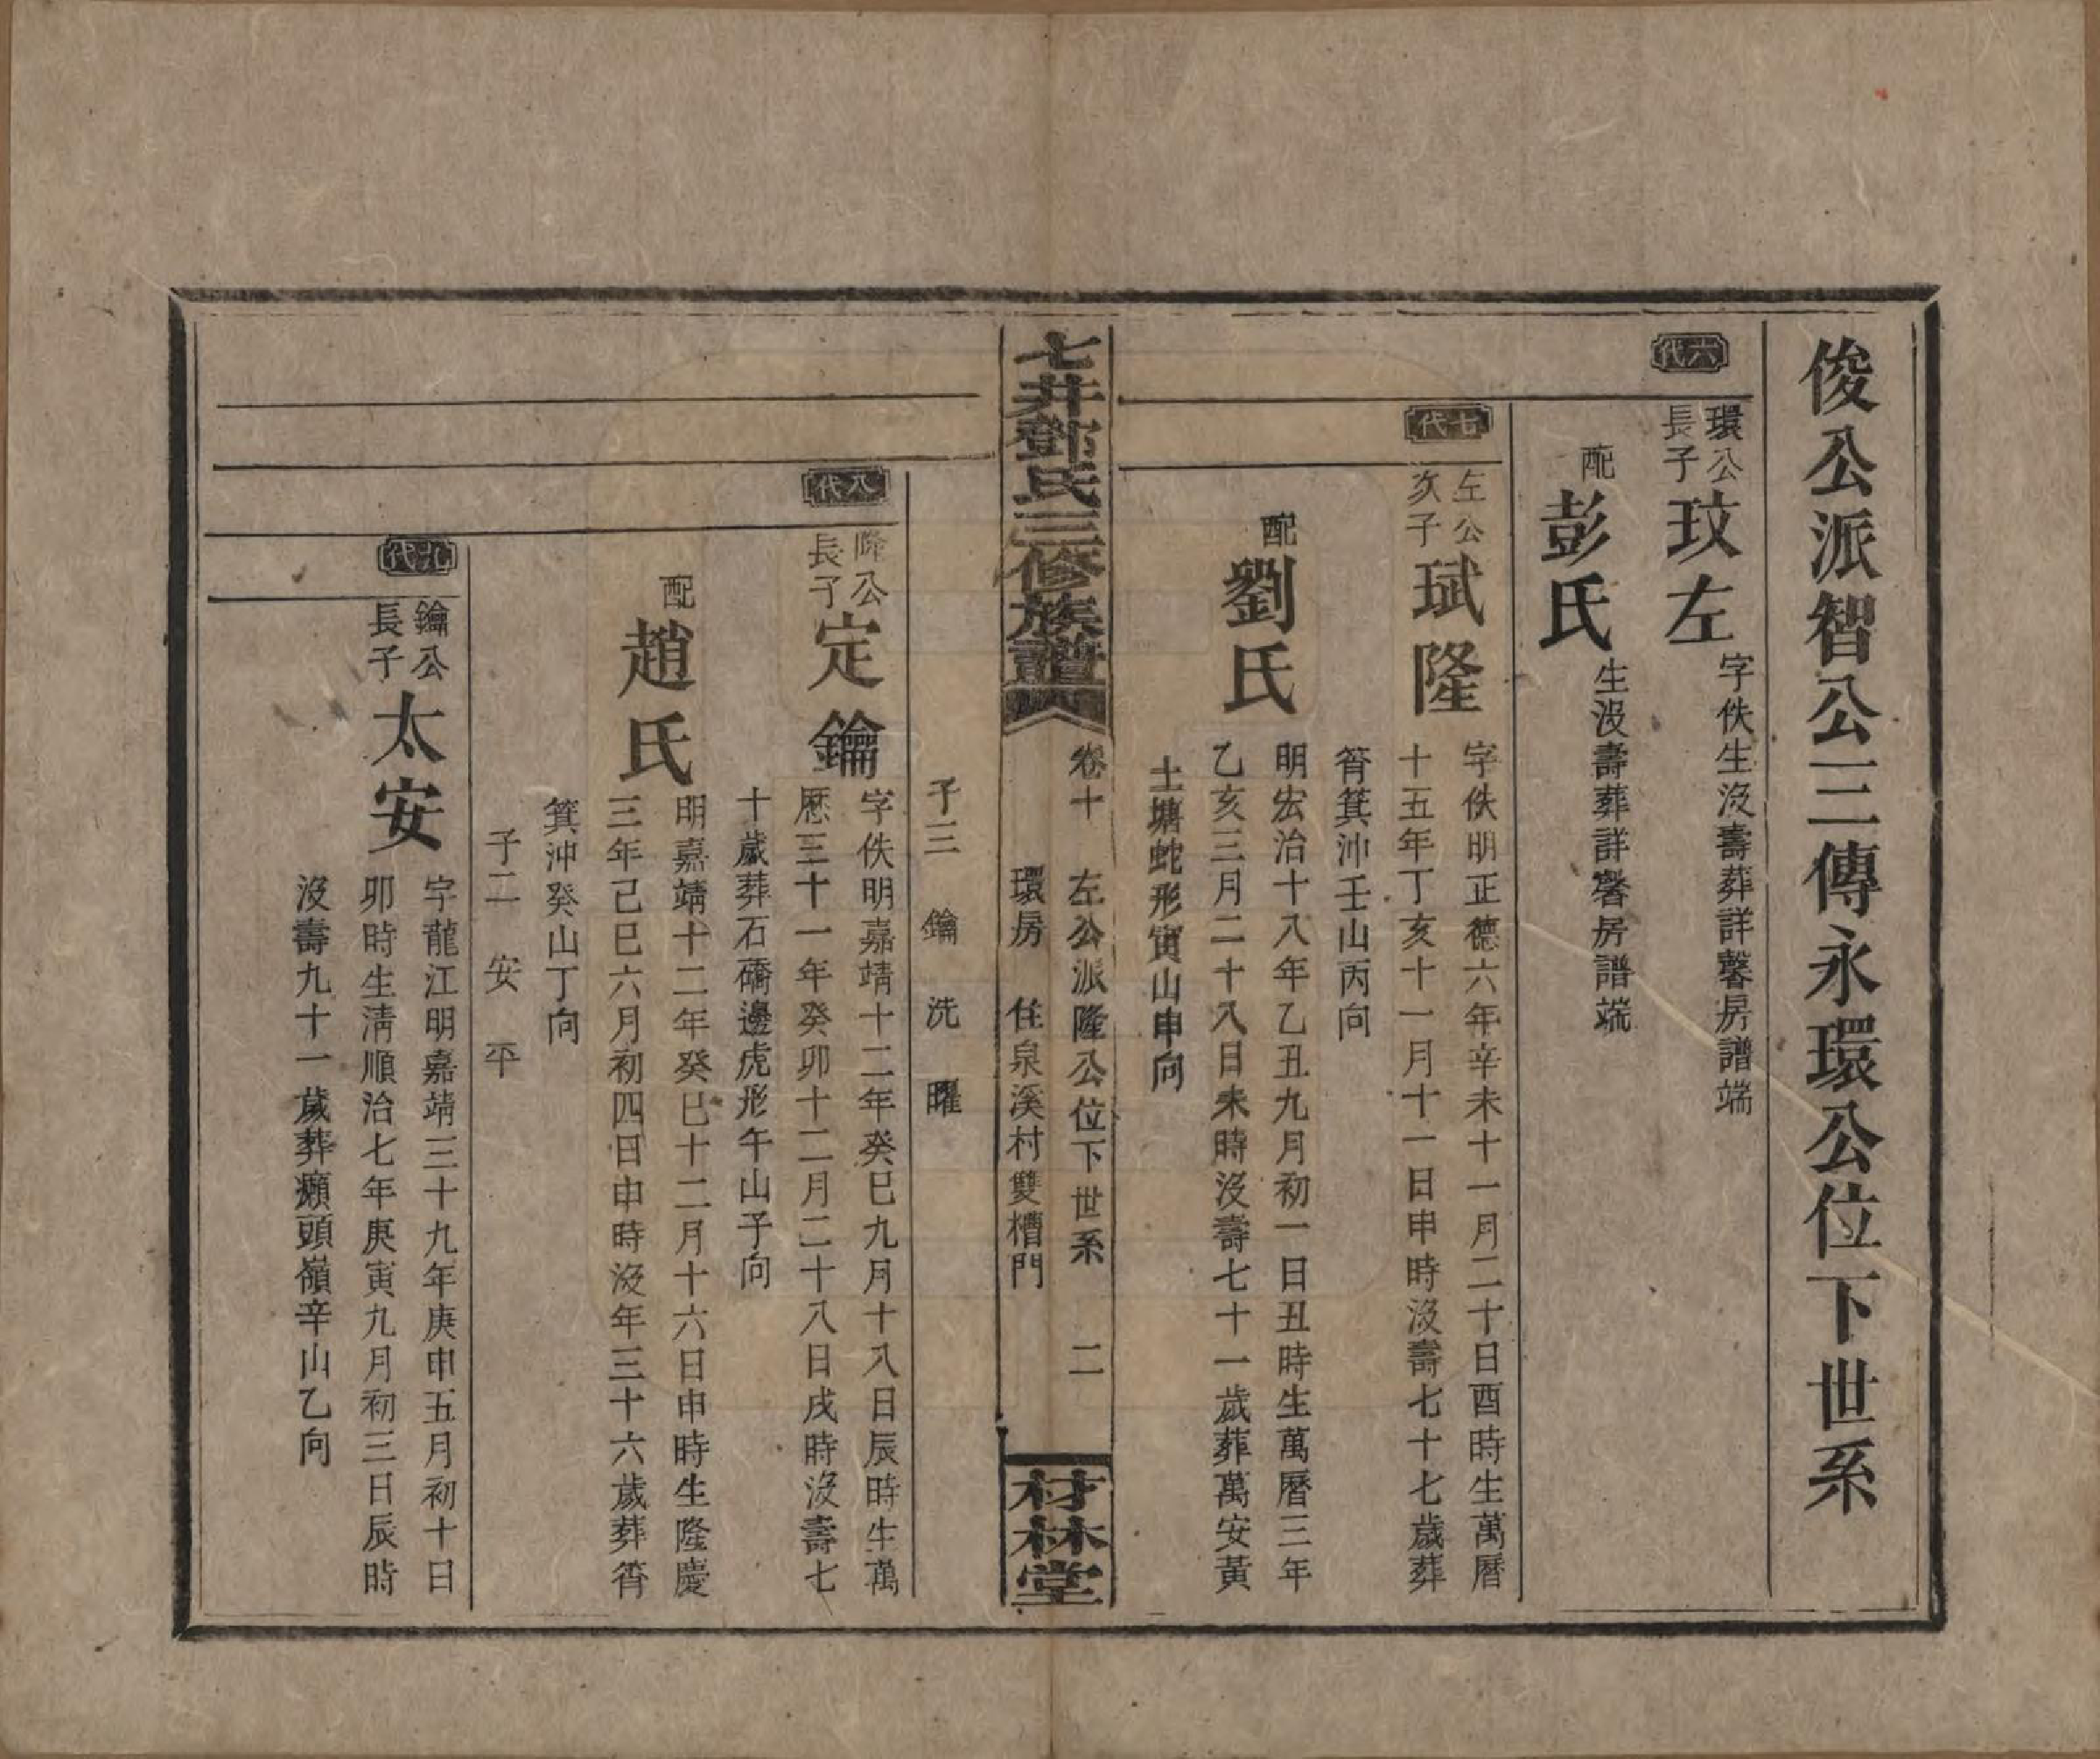 俊公派智公三傳永環公位下世系
六代
環公
長子
玟左
字佚生沒壽葬詳馨房譜端
配
彭氏
生沒壽葬詳馨房譜端
七代
左公
次子
珷隆
字佚明正德六年辛未十一月二十日酉時生萬曆
十五年丁亥十一月十一日申時沒壽七十七歲葬
筲箕沖壬山丙向
配
劉氏
明宏治十八年乙丑九月初一日丑時生萬曆三年
乙亥三月二十八日未時沒壽七十一歲葬萬安黃
土塘蛇形寅山申向
七井鄧氏三修族譜
卷十　左公派隆公位下世系　二
環房　住泉溪村雙槽門
材林堂
子三　鑰　洗　曜
八代
隆公
長子
定鑰
字佚明嘉靖十二年癸巳九月十八日辰時生萬
歷三十一年癸卯十二月二十八日戌時沒壽七
十歲葬石礄邊虎形午山子向
配
趙氏
明嘉靖十二年癸巳十二月十六日申時生隆慶
三年己巳六月初四日申時沒年三十六歲葬筲
箕沖癸山丁向
子二　安　平
九代
鑰公
長子
太安
字龍江明嘉靖三十九年庚申五月初十日
卯時生清順治七年庚寅九月初三日辰時
沒壽九十一歲葬癩頭嶺辛山乙向